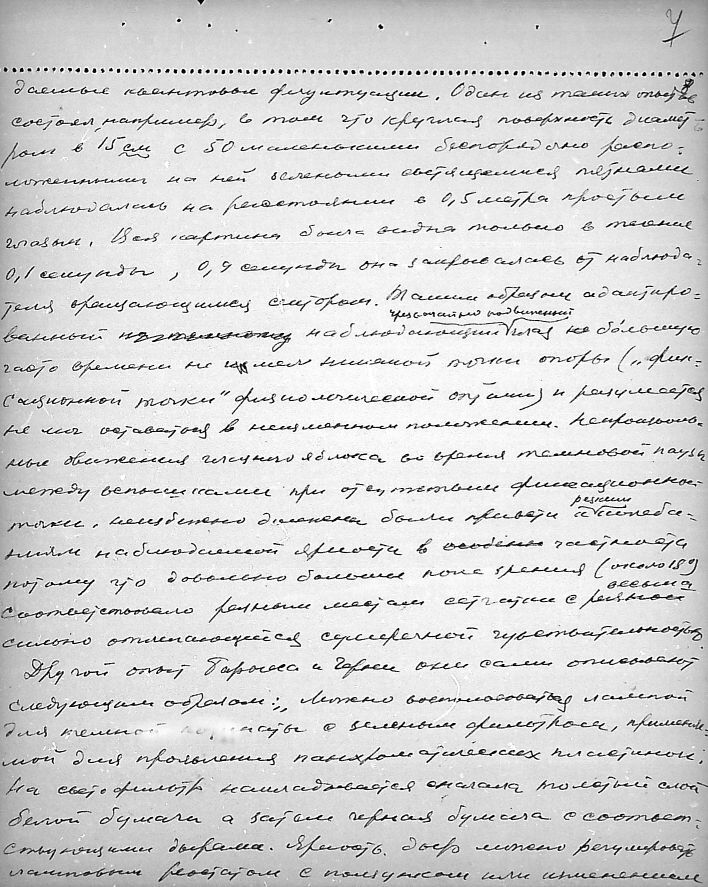 7
даемые квантовые флуктуации. Один из таких опытов
состоял например, в том что круглая поверхность диамет-
ром в 15 см с 50 маленькими беспорядочно распо-
ложенными на ней зелеными светящимися пятнами
наблюдалась на расстоянии в 0,5 метра простым
глазом. Вся картина была видна только в течение
0,1 секунды, 0,9 секунды она закрывалась от наблюда-
теля вращающимся сектором. Таким образом адаптиро-
чрезвычайно подвижный
ванный к темноте наблюдающий глаз не большую
часть времени не имел никакой точки опоры („фик-
сационной точки" физиологической оптики) и разумеется
не мог оставаться в неизменном положении. Непроизволь-
ные движения глазного яблока во время темновой паузы
между вспышками при отсутствии фиксационной
резким
точки, неизбежно должны были привести к колеба-
ниям наблюдаемой яркости в особен частности
потому что довольно большое поле зрения (около 18°)
весьма
соответствовало разным местам сетчатки с разной
сильно отличающейся сумеречной чувствительностью.
Другой опыт Барнеса и Черни они сами описывают
следующим образом: „Можно воспользоваться лампой
для темной комнаты с зеленым фильтром, применяе-
мой для проявления панхроматических пластинок.
На светофильтр накладывается сначала толстый слой
белой бумаги а затем черная бумага с соответ-
ствующими дырами. Яркость дыр можно регулировать
ламповым реостатом с ползунком или изменением